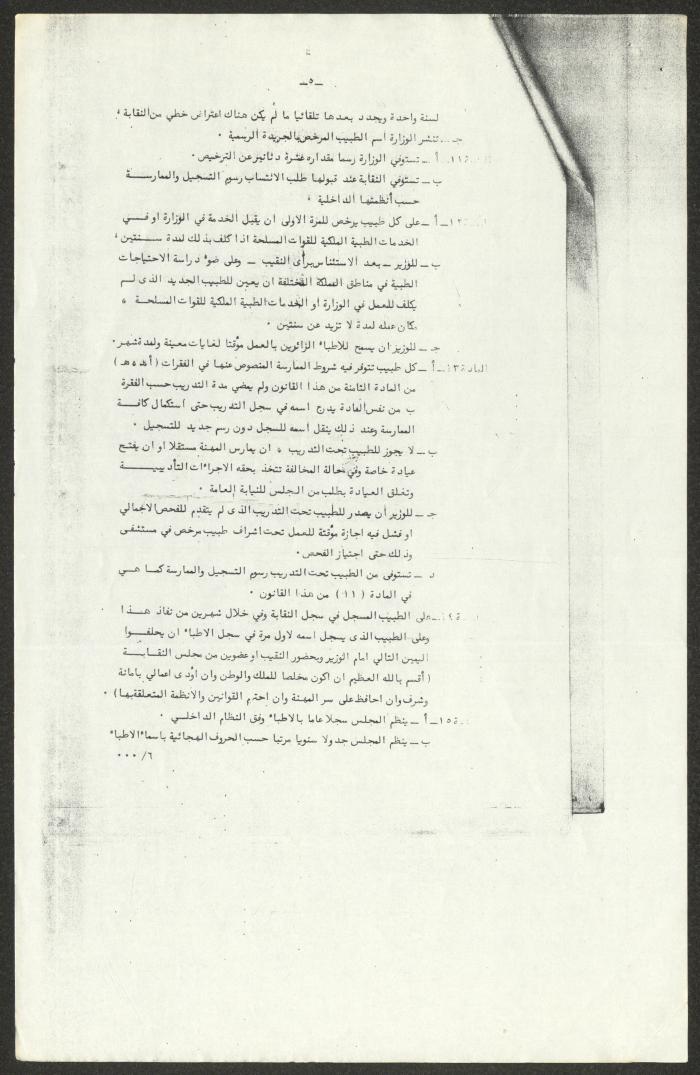 ـ ٥ ـ
لسنة واحدة ويجدد بعدها تلقائيا ما لم يكن هناك اعتراض خطي من النقابة ،
جـ ـ تنشر الوزارة اسم الطبيب المرخص بالجريدة الرسمية .
١١ـ أ ـ تستوفي الوزارة رسما مقداره عشرة دنانير عن الترخيص .
ب ـ تستوفي النقابة عند قبولها طلب الانتساب رسوم التسجيل والممارســـة
حسب أنظمتها الداخلية .
١٢ـ أ ـ على كل طبيب يرخص للمرة الاولى ان يقبل الخدمة في الوزارة او فـــي
الخدمات الطبية الملكية للقوات المسلحة اذا كلف بذلك لمدة ســـنتين ،
ب ـ للوزير ـ بعد الاستئناس برأى النقيب ـ وعلى ضوء دراسة الاحتياجات
الطبية في مناطق المملكة المختلفة ان يعين للطبيب الجديد الذى لـــم
يكلف للعمل في الوزارة او الخدمات الطبية الملكية للقوات المسلحــة ،
مكان عمله لمدة لا تزيد عن سنتين .
جـ ـ للوزير ان يسمح للاطباء الزائرين بالعمل مؤقتا لغايات معينة ولمدة شهر .
المادة ١٣ـ أ ـ كل طبيب تتوفر فيه شروط الممارسة المنصوص عنها في الفقرات ( أ ، د ، هـ )
من المادة الثامنة من هذا القانون ولم يمضي مدة التدريب حسب الفقرة
ب من نفس المادة يدرج اسمه في سجل التدريب حتى استكمال كافـــة
الممارسة وعند ذلك ينقل اسمه للسجل دون رسم جديد للتسجيل .
ب ـ لا يجوز للطبيب تحت التدريب ، ان يمارس المهنة مستقلا او ان يفتـــح
عيادة خاصة وفي حالة المخالفة تتخذ بحقه الاجراءات التأديبيـــــة
وتغلق العيادة بطلب من المجلس للنيابة العامة .
جـ ـ للوزير أن يصدر للطبيب تحت التدريب الذى لم يتقدم للفحص الاجمالي
او فشل فيه اجازة مؤقتة للعمل تحت اشراف طبيب مرخص في مستشفى
وذلك حتى اجتياز الفحص .
د ـ تستوفى من الطبيب تحت التدريب رسوم التسجيل والممارسة كمـا هـــي
في المادة (١١) من هذا القانون .
ة ١٤ـ على الطبيب المسجل في سجل النقابة وفي خلال شهرين من نفاذ هـــذا
وعلى الطبيب الذى يسجل اسمه لاول مرة في سجل الاطباء ان يحلفـــوا
اليمين التالي امام الوزير وبحضور النقيب او عضوين من مجلس النقـابـــة
( أقسم بالله العظيم ان اكون مخلصا للملك والوطن وان اؤدى اعمالي بامانة
وشرف وان احافظ على سر المهنة وان احترم القوانين والانظمة المتعلقة بها ) .
ة ١٥ـ أ ـ ينظم المجلس سجلا عاما بالاطباء وفق النظام الداخلـــي .
ب ـ ينظم المجلس جدولا سنويا مرتبا حسب الحروف الهجائية باسماء الاطباء
٦/ ٠٠٠